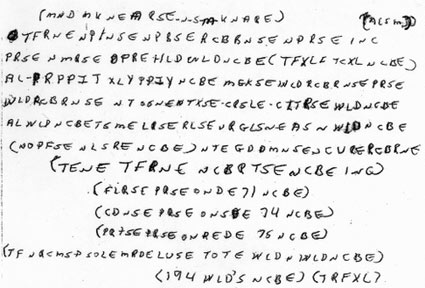 (MND MKNEARSE-N-S-M-KNARE) (ACSM)
TFRNENPINSENPBSERCBRNSENPRSEINC
PRSENMRSEOPREHLDWLDNCBE(TFXLFTCXLNCBE)
AL-PRPPITXLYPPIYNCBEMGKSEWLDRCBRNSEPRSE
WLDRCBRNSENTSGNENTXSE-CRSLE-CITRSEWLDNCBE
ALWLDNCBETSMELRSERLSENRGLSNEASNWLDNCBE
(NOPFSENLSRENCBE)NTEGDDMNSENCURERCBRNE
(TENETFRNENCBRTSENCBEINC)
(FLRSEPRSEONDE71NCBE)
(CDNSEPRSEONSDE74NCBE)
(PRTSEPRSEONREDE75NCBE)
(TFNQCMSPSOLEMRDELUSETOTEWLDNWLDNCBE)
(194WLD'SNCBE)(TRFXL)